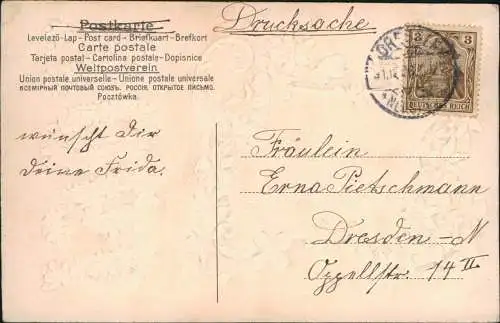 Postkarte
Drucksache
Levelező-Lap - Post card - Briefkaart - Brefkort
Carte postale
Tarjeta postal - Cartolina postale - Dopisnice
Weltpostverein
Union postale universelle - Unione postale universale
ВСЕМІРНЫЙ ПОЧТОВЫЙ СОЮЗЪ. РОССІЯ. ОТКРЫТОЕ ПИСЬМО.
Pocztówka.
3 3
DEUTSCHES REICH
DRESDEN
wünscht Dir
Deine Frida.
Fräulein
Erna Pietschmann
Dresden-N
Oppellstr. 14 II